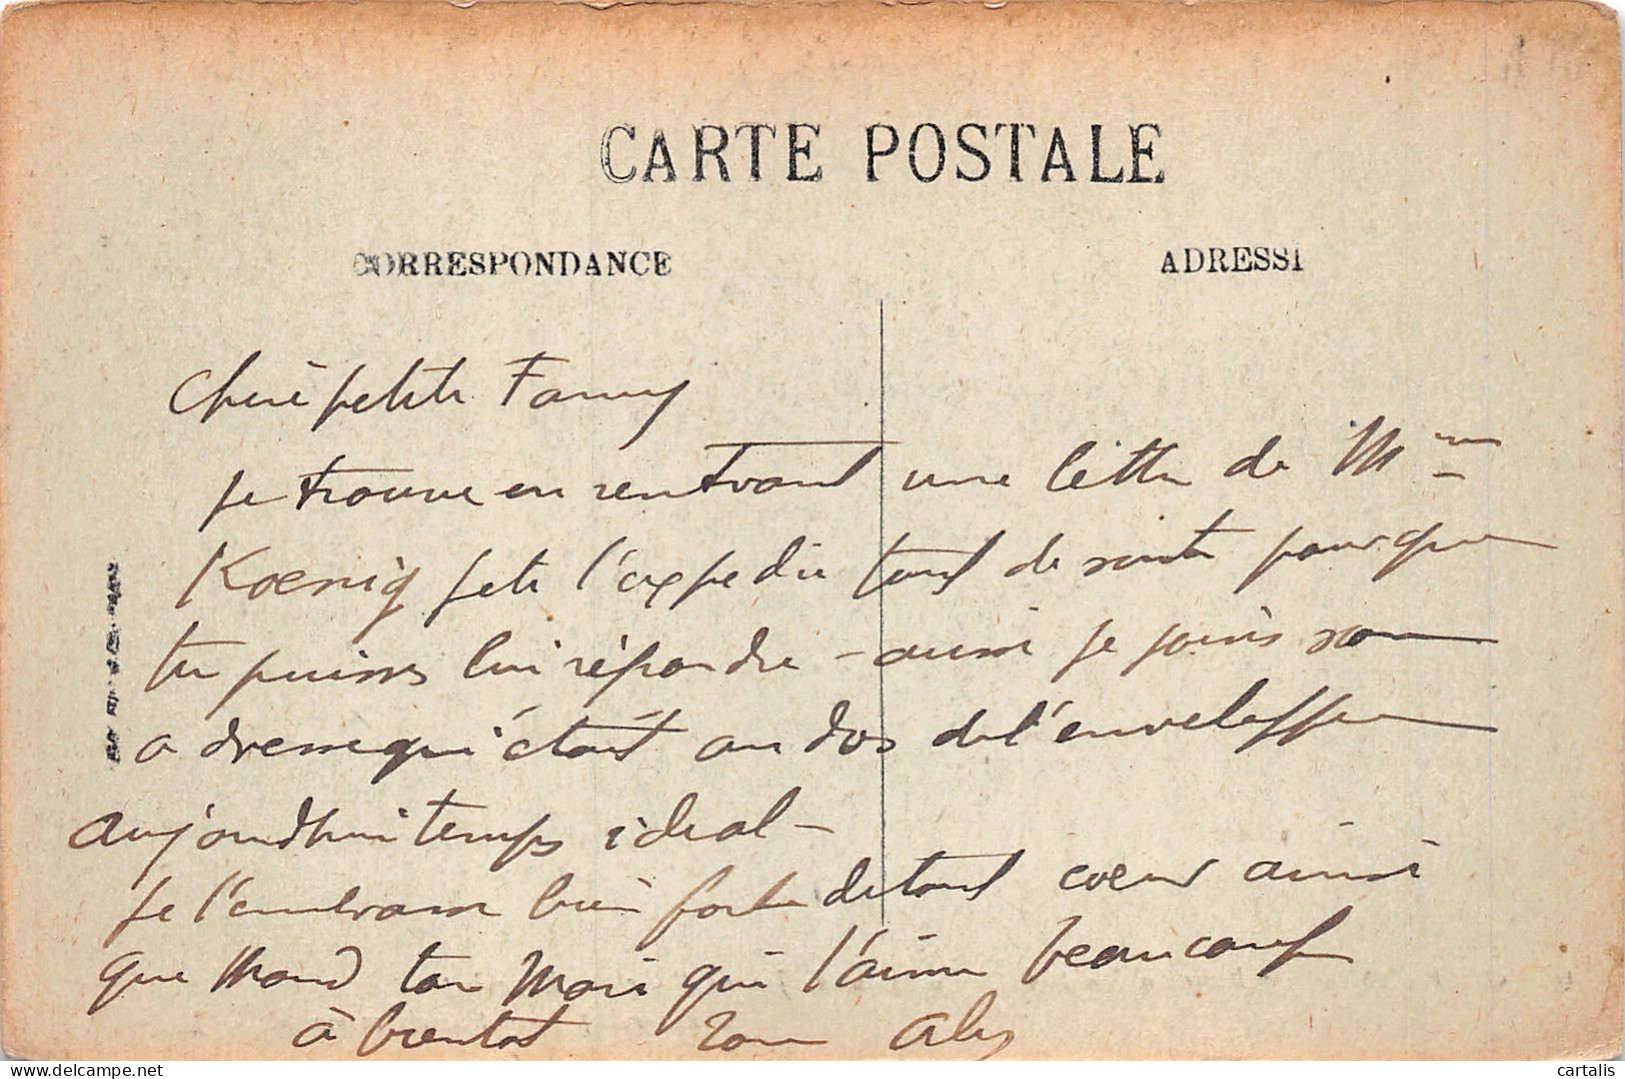 CARTE POSTALE
CORRESPONDANCE
ADRESSE
Chérie petite Fanny
je trouve en rentrant une lettre de Mme
Koenig je te l'expédie tout de suite pour que
tu puisses lui répondre - aussi je joins son
adresse qui était au dos de l'enveloppe
aujourd'hui temps idéal -
Je t'embrasse bien forte de tout cœur ainsi
que ton qui t'aime beaucoup
à bientôt Aly
cartalis